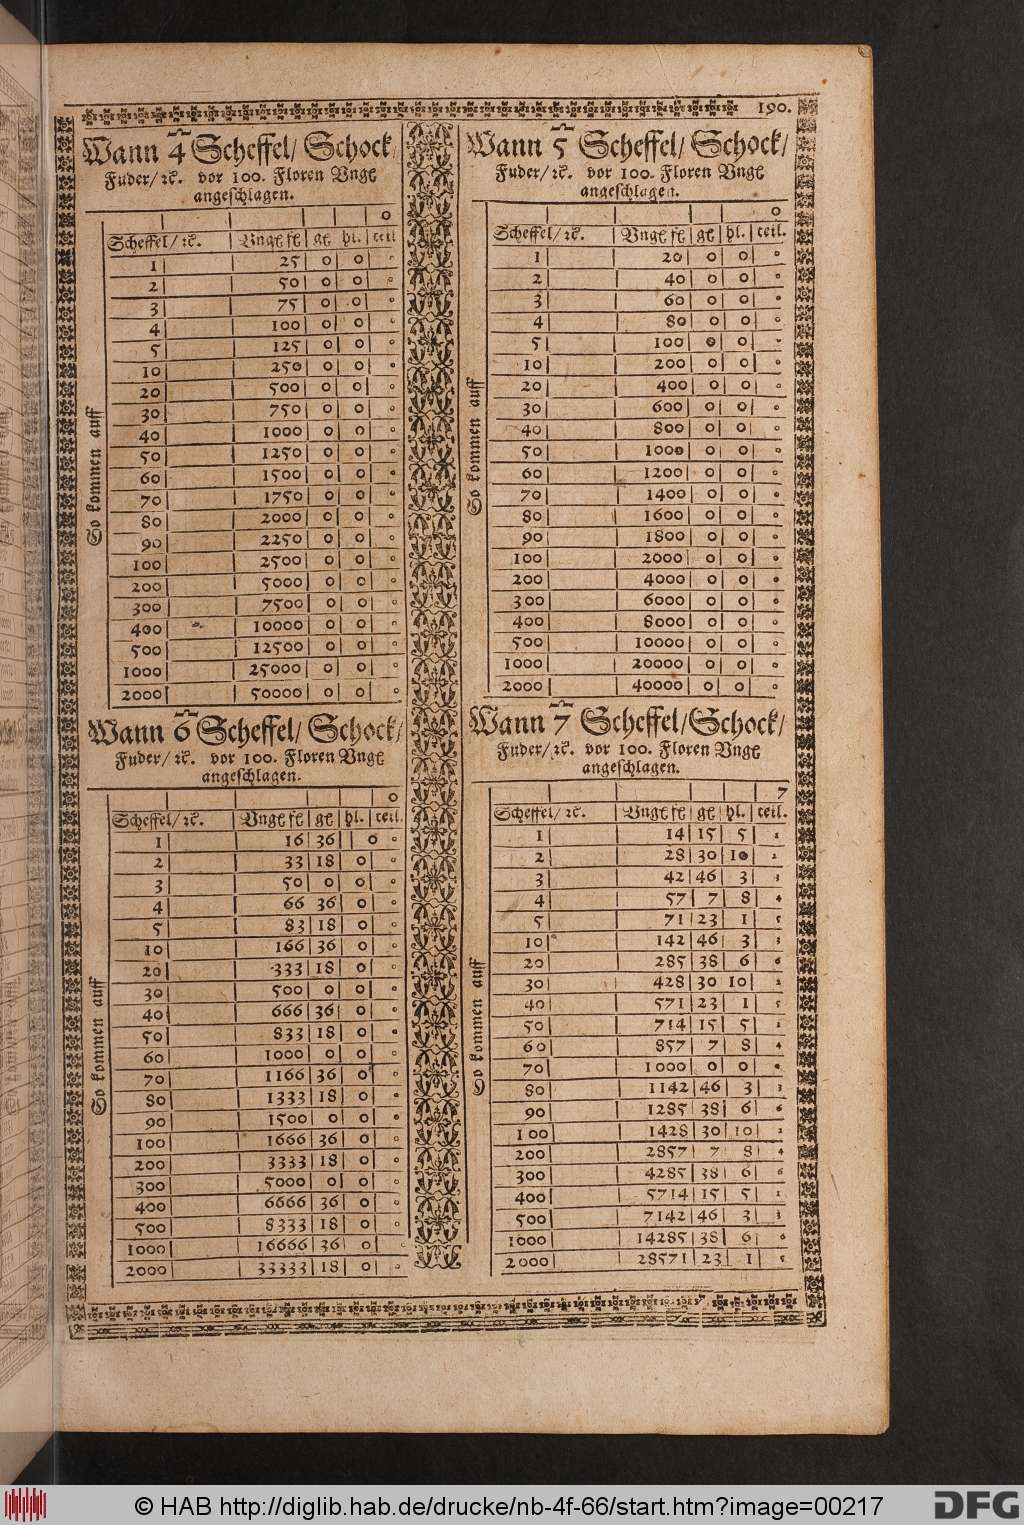 190.
Wann 4 Scheffel/ Schock/
Fuder/ ꝛc. vor 100. Floren Vngₜ
angeschlagen.
0
Scheffel/ ꝛc. Vngₜ fₜ gₜ hl. teil
So kommen auff
1 25 0 0 0
2 50 0 0 0
3 75 0 0 0
4 100 0 0 0
5 125 0 0 0
10 250 0 0 0
20 500 0 0 0
30 750 0 0 0
40 1000 0 0 0
50 1250 0 0 0
60 1500 0 0 0
70 1750 0 0 0
80 2000 0 0 0
90 2250 0 0 0
100 2500 0 0 0
200 5000 0 0 0
300 7500 0 0 0
400 10000 0 0 0
500 12500 0 0 0
1000 25000 0 0 0
2000 50000 0 0 0
Wann 5 Scheffel/ Schock/
Fuder/ ꝛc. vor 100. Floren Vngₜ
angeschlagen.
0
Scheffel/ ꝛc. Vngₜ fₜ gₜ hl. teil.
So kommen auff
1 20 0 0 0
2 40 0 0 0
3 60 0 0 0
4 80 0 0 0
5 100 0 0 0
10 200 0 0 0
20 400 0 0 0
30 600 0 0 0
40 800 0 0 0
50 1000 0 0 0
60 1200 0 0 0
70 1400 0 0 0
80 1600 0 0 0
90 1800 0 0 0
100 2000 0 0 0
200 4000 0 0 0
300 6000 0 0 0
400 8000 0 0 0
500 10000 0 0 0
1000 20000 0 0 0
2000 40000 0 0 0
Wann 6 Scheffel/ Schock/
Fuder/ ꝛc. vor 100. Floren Vngₜ
angeschlagen.
0
Scheffel/ ꝛc. Vngₜ fₜ gₜ hl. teil.
So kommen auff
1 16 36 0 0
2 33 18 0 0
3 50 0 0 0
4 66 36 0 0
5 83 18 0 0
10 166 36 0 0
20 333 18 0 0
30 500 0 0 0
40 666 36 0 0
50 833 18 0 0
60 1000 0 0 0
70 1166 36 0 0
80 1333 18 0 0
90 1500 0 0 0
100 1666 36 0 0
200 3333 18 0 0
300 5000 0 0 0
400 6666 36 0 0
500 8333 18 0 0
1000 16666 36 0 0
2000 33333 18 0 0
Wann 7 Scheffel/ Schock/
Fuder/ ꝛc. vor 100. Floren Vngₜ
angeschlagen.
7
Scheffel/ ꝛc. Vngₜ fₜ gₜ hl. teil.
So kommen auff
1 14 15 5 1
2 28 30 10 2
3 42 46 3 3
4 57 7 8 4
5 71 23 1 5
10 142 46 3 3
20 285 38 6 6
30 428 30 10 2
40 571 23 1 5
50 714 15 5 1
60 857 7 8 4
70 1000 0 0 0
80 1142 46 3 3
90 1285 38 6 6
100 1428 30 10 2
200 2857 7 8 4
300 4285 38 6 6
400 5714 15 5 1
500 7142 46 3 3
1000 14285 38 6 6
2000 28571 23 1 5
© HAB http://diglib.hab.de/drucke/nb-4f-66/start.htm?image=00217
DFG